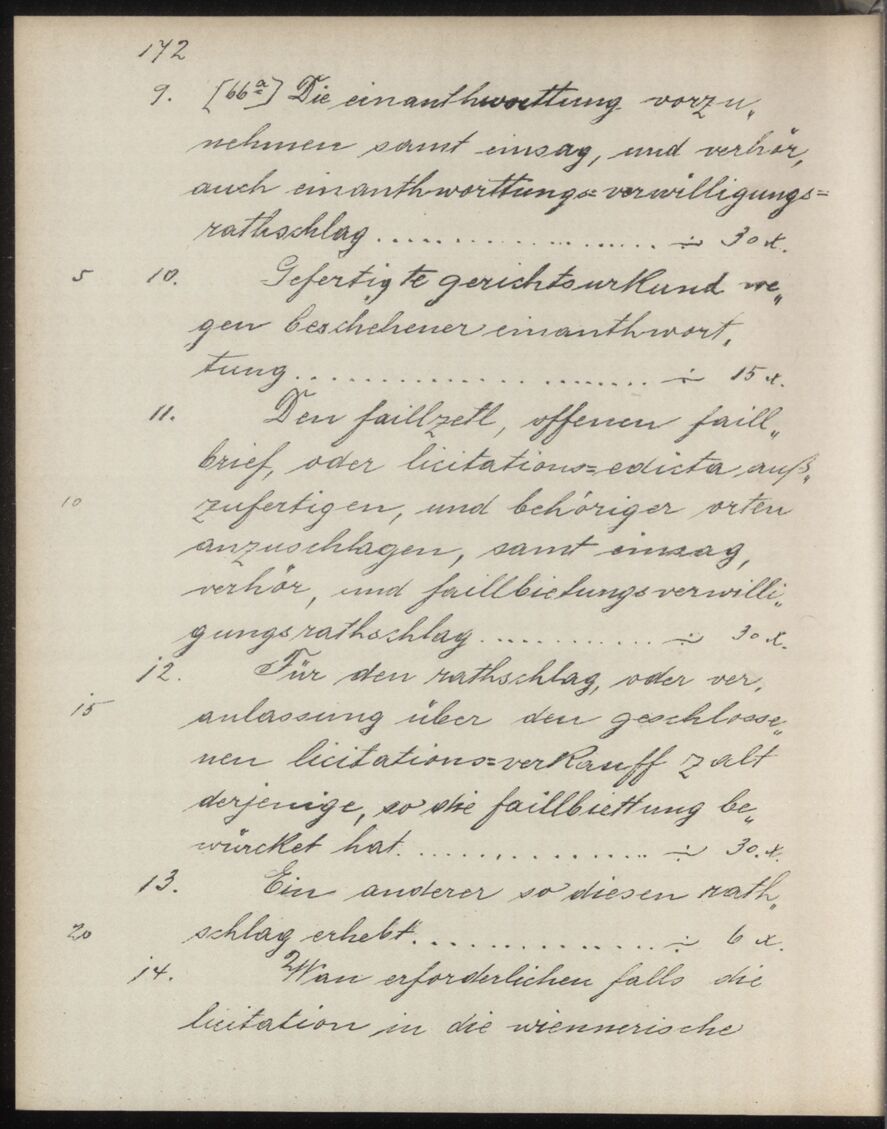 172
9. [66a] Die einanthworttung vorzu„
nehmen samt einsag, und verhör,
auch einanthworttungs=verwilligungs=
rathschlag .................... ÷ 30 x.
5 10. Gefertigte gerichtsurkund we„
gen beschehener einanthwort„
tung .................... ÷ 15 x.
11. Den faillzetl, offenen faill„
brief, oder licitations=edicta auß„
10 zufertigen, und behöriger orten
anzuschlagen, samt einsag,
verhör, und faillbietungsverwilli„
gungsrathschlag ............ ÷ 30 x.
12. Für den rathschlag, oder ver„
15 anlassung über den geschlosse„
nen licitations=verkauff zalt
derjenige, so die faillbiettung be„
würcket hat ............... ÷ 30. x.
13. Ein anderer so diesen rath„
20 schlag erhebt .............. ÷ 6 x.
14. Wan erforderlichen falls die
licitation in die wiennerische